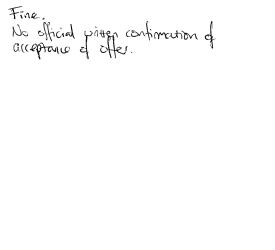 Fine.
No official written confirmation of
acceptance of offer.